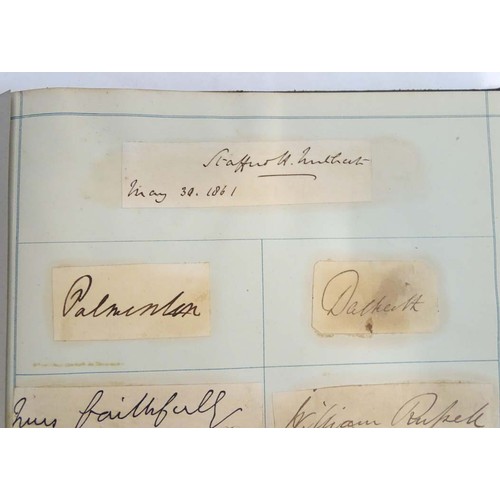 Stafford H. Northcote
May 30. 1861
Palmerston
Dalkeith
Yours faithfully
William Russell